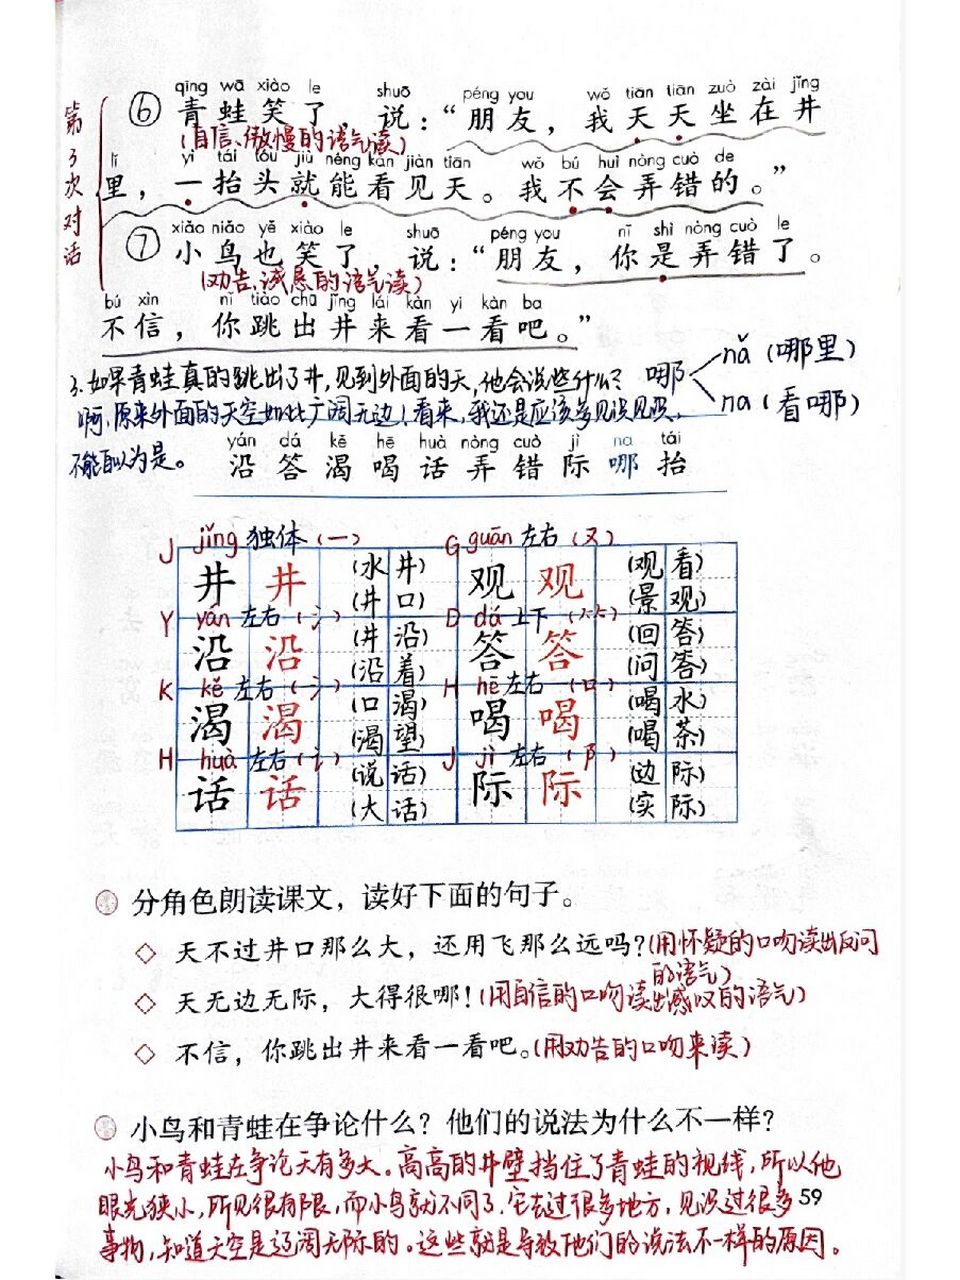 第3次对话
qīng wā xiào le shuō péng you wǒ tiān tiān zuò zài jǐng
⑥ 青蛙笑了，说：“朋友，我天天坐在井
(自信、傲慢的语气读)
lǐ yì tái tóu jiù néng kàn jiàn tiān wǒ bú huì nòng cuò de
里，一抬头就能看见天。我不会弄错的。”
xiǎo niǎo yě xiào le shuō péng you nǐ shì nòng cuò le
⑦ 小鸟也笑了，说：“朋友，你是弄错了。
(劝告、诚恳的语气读)
bú xìn nǐ tiào chū jǐng lái kàn yi kàn ba
不信，你跳出井来看一看吧。”
3.如果青蛙真的跳出了井,见到外面的天,他会说些什么?
哪 nǎ (哪里)
na (看哪)
啊,原来外面的天空如此广阔无边!看来,我还是应该多见识见识,
不能自以为是。
yán dá kě hē huà nòng cuò jì na tái
沿 答 渴 喝 话 弄 错 际 哪 抬
J jǐng 独体 (一) G guān 左右 (又)
井 井 (水井) 观 观 (观看)
(井口) (景观)
Y yán 左右 (氵) D dá 上下 (⺮)
沿 沿 (井沿) 答 答 (回答)
(沿着) (问答)
K kě 左右 (氵) H hē 左右 (口)
渴 渴 (口渴) 喝 喝 (喝水)
(渴望) (喝茶)
H huà 左右 (讠) J jì 左右 (阝)
话 话 (说话) 际 际 (边际)
(大话) (实际)
分角色朗读课文，读好下面的句子。
◇ 天不过井口那么大，还用飞那么远吗？(用怀疑的口吻读出反问
的语气)
◇ 天无边无际，大得很哪！(用自信的口吻读出感叹的语气)
◇ 不信，你跳出井来看一看吧。(用劝告的口吻来读)
小鸟和青蛙在争论什么？他们的说法为什么不一样？
小鸟和青蛙在争论天有多大。高高的井壁挡住了青蛙的视线,所以他
眼光狭小,所见很有限,而小鸟就不同了,它去过很多地方,见识过很多
59
事物,知道天空是辽阔无际的。这些就是导致他们的说法不一样的原因。